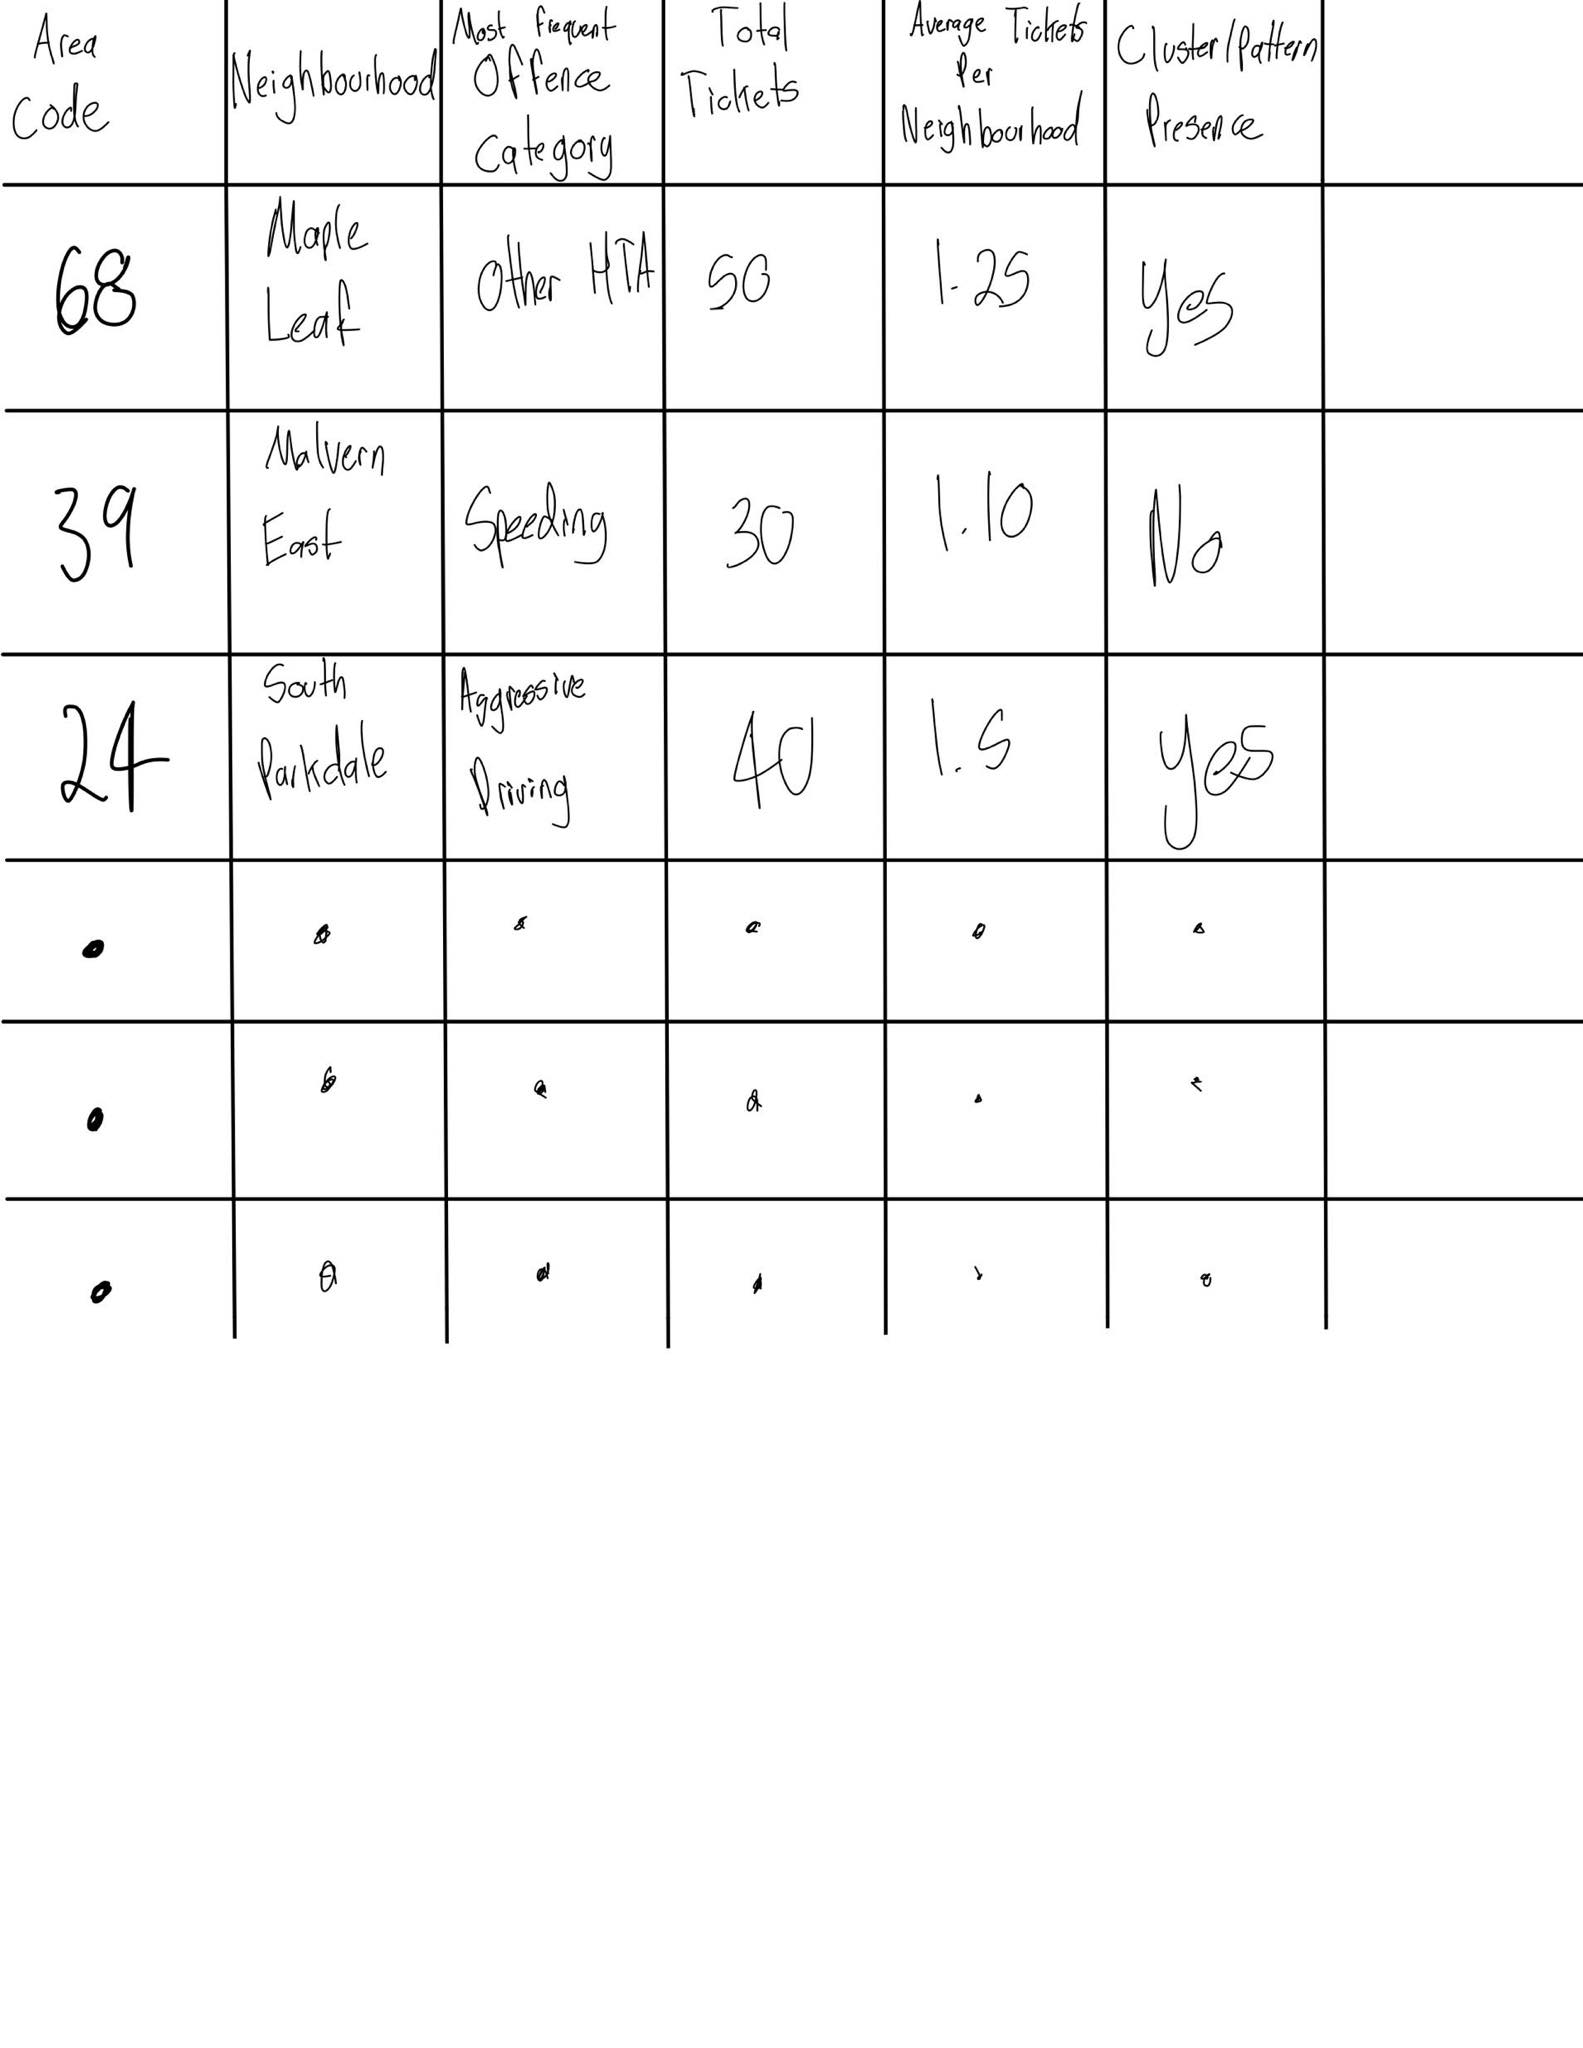 Area Code
Neighbourhood
Most Frequent Offence Category
Total Tickets
Average Tickets Per Neighbourhood
Cluster/Pattern Presence
68
Maple Leaf
Other HTA
50
1.25
Yes
39
Malvern East
Speeding
30
1.10
No
24
South Parkdale
Aggressive Driving
40
1.5
Yes